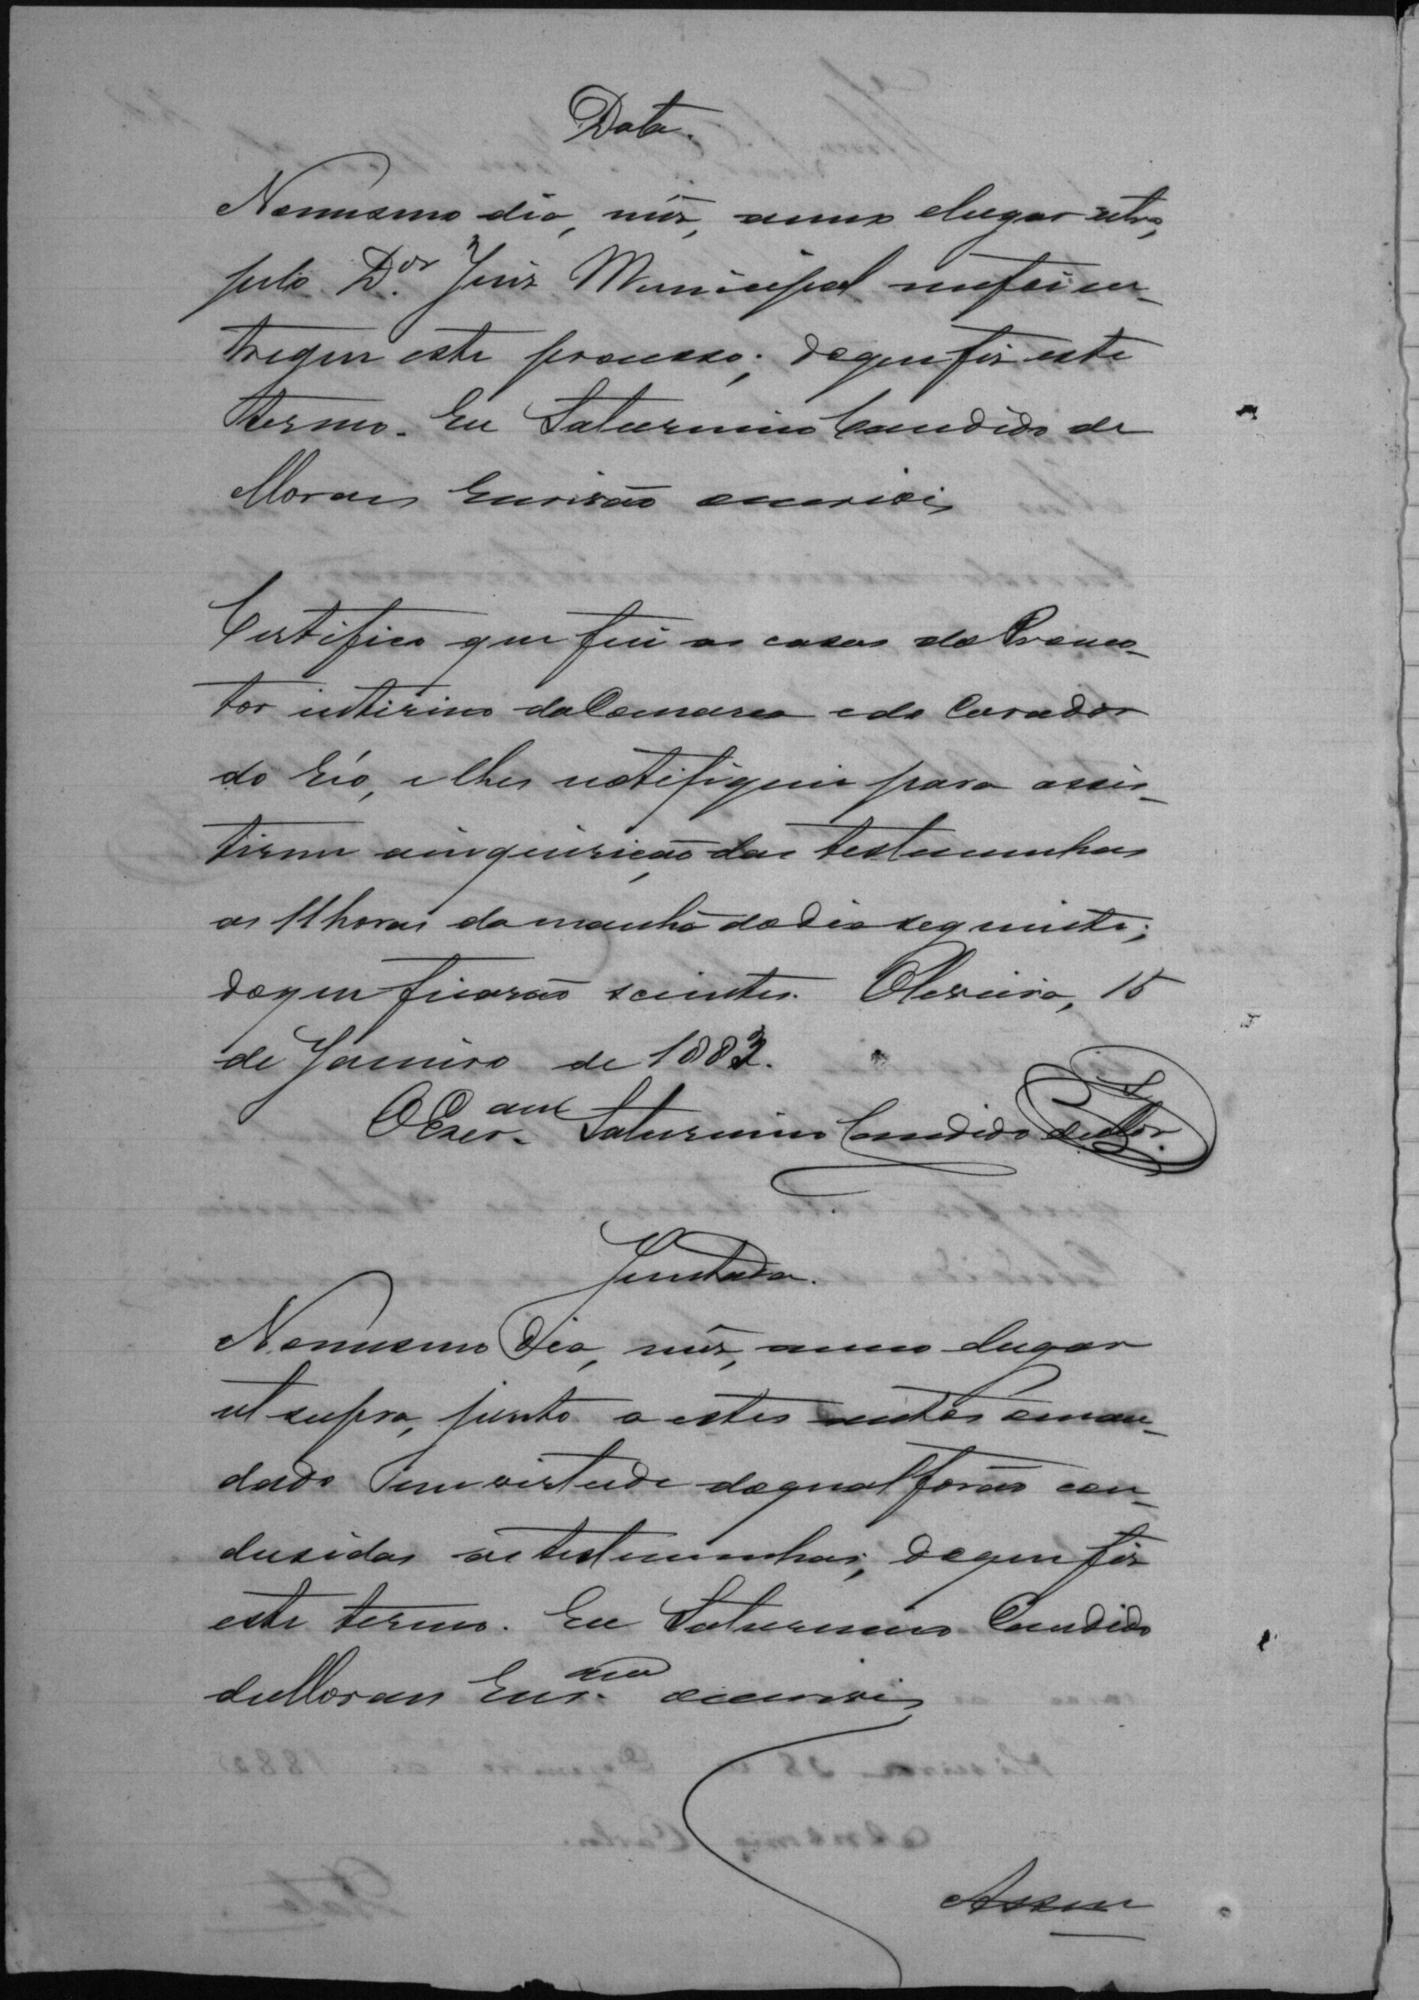 Data.
No mesmo dia, mez, anno e lugar retro,
pelo D.or Juiz Municipal me foi en-
tregue este processo; do que fiz este
termo. Eu Saturnino Candido de
Moraes Escrivão o escrivi,
Certifico que fui as casas do Promo-
tor interino da Comarca e do Curador
do Réo, e lhes notifiquei para assis-
tirem a inquirição das testemunhas
as 11 horas da manhã do dia seguinte;
do que ficarão scientes. Oliveira, 15
de Janeiro de 1883.
O Escr.am Saturnino Candido de Mor.
Juntada.
No mesmo dia, mez, anno e lugar
ut supra, junto a estes autos o man-
dado em virtude do qual forão con-
dusidas as testemunhas; do que fiz
este termo. Eu Saturnino Candido
de Moraes Escr.am o escrivi,
Assen